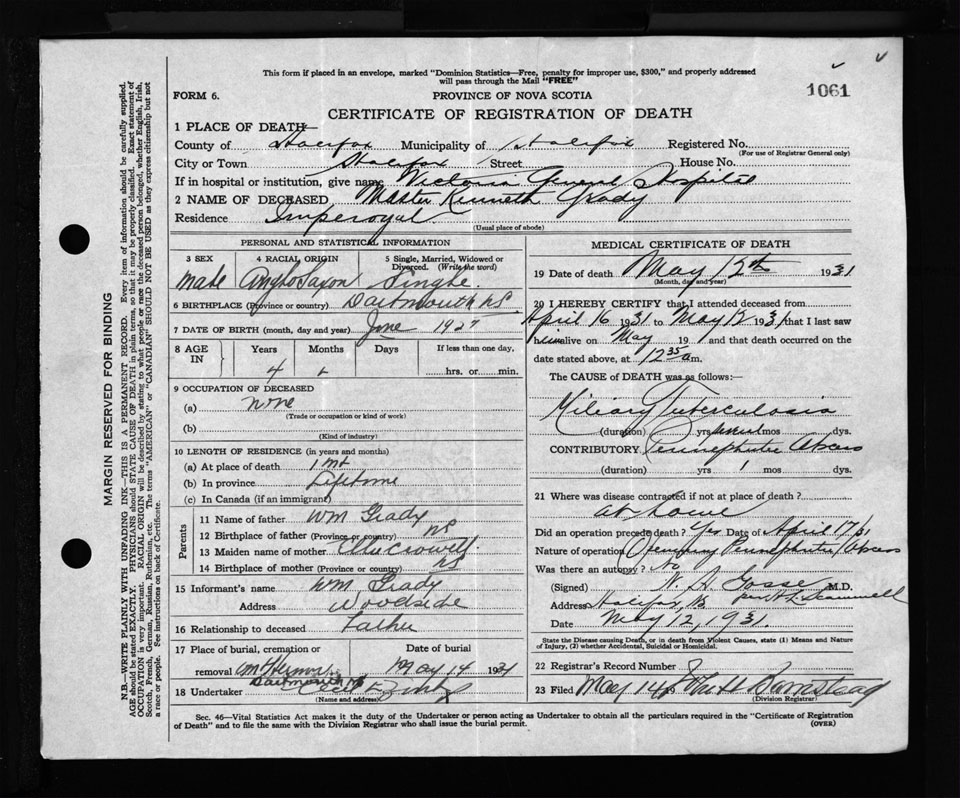 This form if placed in an envelope, marked "Dominion Statistics—Free, penalty for improper use, $300," and properly addressed
will pass through the Mail "FREE"
1061
FORM 6.
PROVINCE OF NOVA SCOTIA
CERTIFICATE OF REGISTRATION OF DEATH
1 PLACE OF DEATH—
County of Halifax Municipality of Halifax Registered No.
(For use of Registrar General only)
City or Town Halifax Street House No.
If in hospital or institution, give name Victoria General Hospital
2 NAME OF DECEASED Master Kenneth Grady
Residence Imperoyal
(Usual place of abode)
PERSONAL AND STATISTICAL INFORMATION
3 SEX
male
4 RACIAL ORIGIN
Anglo Saxon
5 Single, Married, Widowed or
Divorced. (Write the word)
Single.
6 BIRTHPLACE (Province or country) Dartmouth NS
7 DATE OF BIRTH (month, day and year) June 1927
8 AGE
IN
Years Months Days If less than one day,
4
hrs. or min.
9 OCCUPATION OF DECEASED
(a) none
(Trade or occupation or kind of work)
(b)
(Kind of industry)
10 LENGTH OF RESIDENCE (in years and months)
(a) At place of death 1 mt
(b) In province Lifetime
(c) In Canada (if an immigrant)
Parents
11 Name of father Wm Grady
12 Birthplace of father (Province or country) NS
13 Maiden name of mother Crowell
14 Birthplace of mother (Province or country) NS
15 Informant's name Wm Grady
Address Woodside
16 Relationship to deceased Father
17 Place of burial, cremation or
removal Mt Hermon
Dartmouth NS
Date of burial
May 14 1931
18 Undertaker
(Name and address)
MEDICAL CERTIFICATE OF DEATH
19 Date of death May 12th 1931
(Month, day and year)
20 I HEREBY CERTIFY that I attended deceased from
April 16 1931 to May 12 1931 that I last saw
him alive on May 19 and that death occurred on the
date stated above, at 12 35 am.
The CAUSE of DEATH was as follows:
Miliary Tuberculosis
(duration) yrs several mos dys.
CONTRIBUTORY Perinephritic Abcess
(duration) yrs 1 mos dys.
21 Where was disease contracted if not at place of death?
at home
Did an operation precede death? Yes Date of April 17/31
Nature of operation Opening Perinephritic Abcess
Was there an autopsy? No
(Signed) Gosse M.D.
Address Halifax, NS
Date May 12, 1931
State the Disease causing Death, or in death from Violent Causes, state (1) Means and Nature
of Injury, (2) whether Accidental, Suicidal or Homicidal.
22 Registrar's Record Number
23 Filed May 14 Barnstead
(Division Registrar)
Sec. 46—Vital Statistics Act makes it the duty of the Undertaker or person acting as Undertaker to obtain all the particulars required in the "Certificate of Registration
of Death" and to file the same with the Division Registrar who shall issue the burial permit.
(OVER)
MARGIN RESERVED FOR BINDING
N.B.—WRITE PLAINLY WITH UNFADING INK—THIS IS A PERMANENT RECORD. Every item of information should be carefully supplied.
AGE should be stated EXACTLY. PHYSICIANS should STATE CAUSE OF DEATH in plain terms, so that it may be properly classified. Exact statement of
OCCUPATION is very important. RACIAL ORIGIN will be described by stating to what people or race the deceased person belonged, whether English, Irish,
Scotch, French, German, Russian, Ruthenian, etc. The terms "AMERICAN" or "CANADIAN" SHOULD NOT BE USED as they express citizenship but not
a race or people. Fee instructions on back of Certificate.